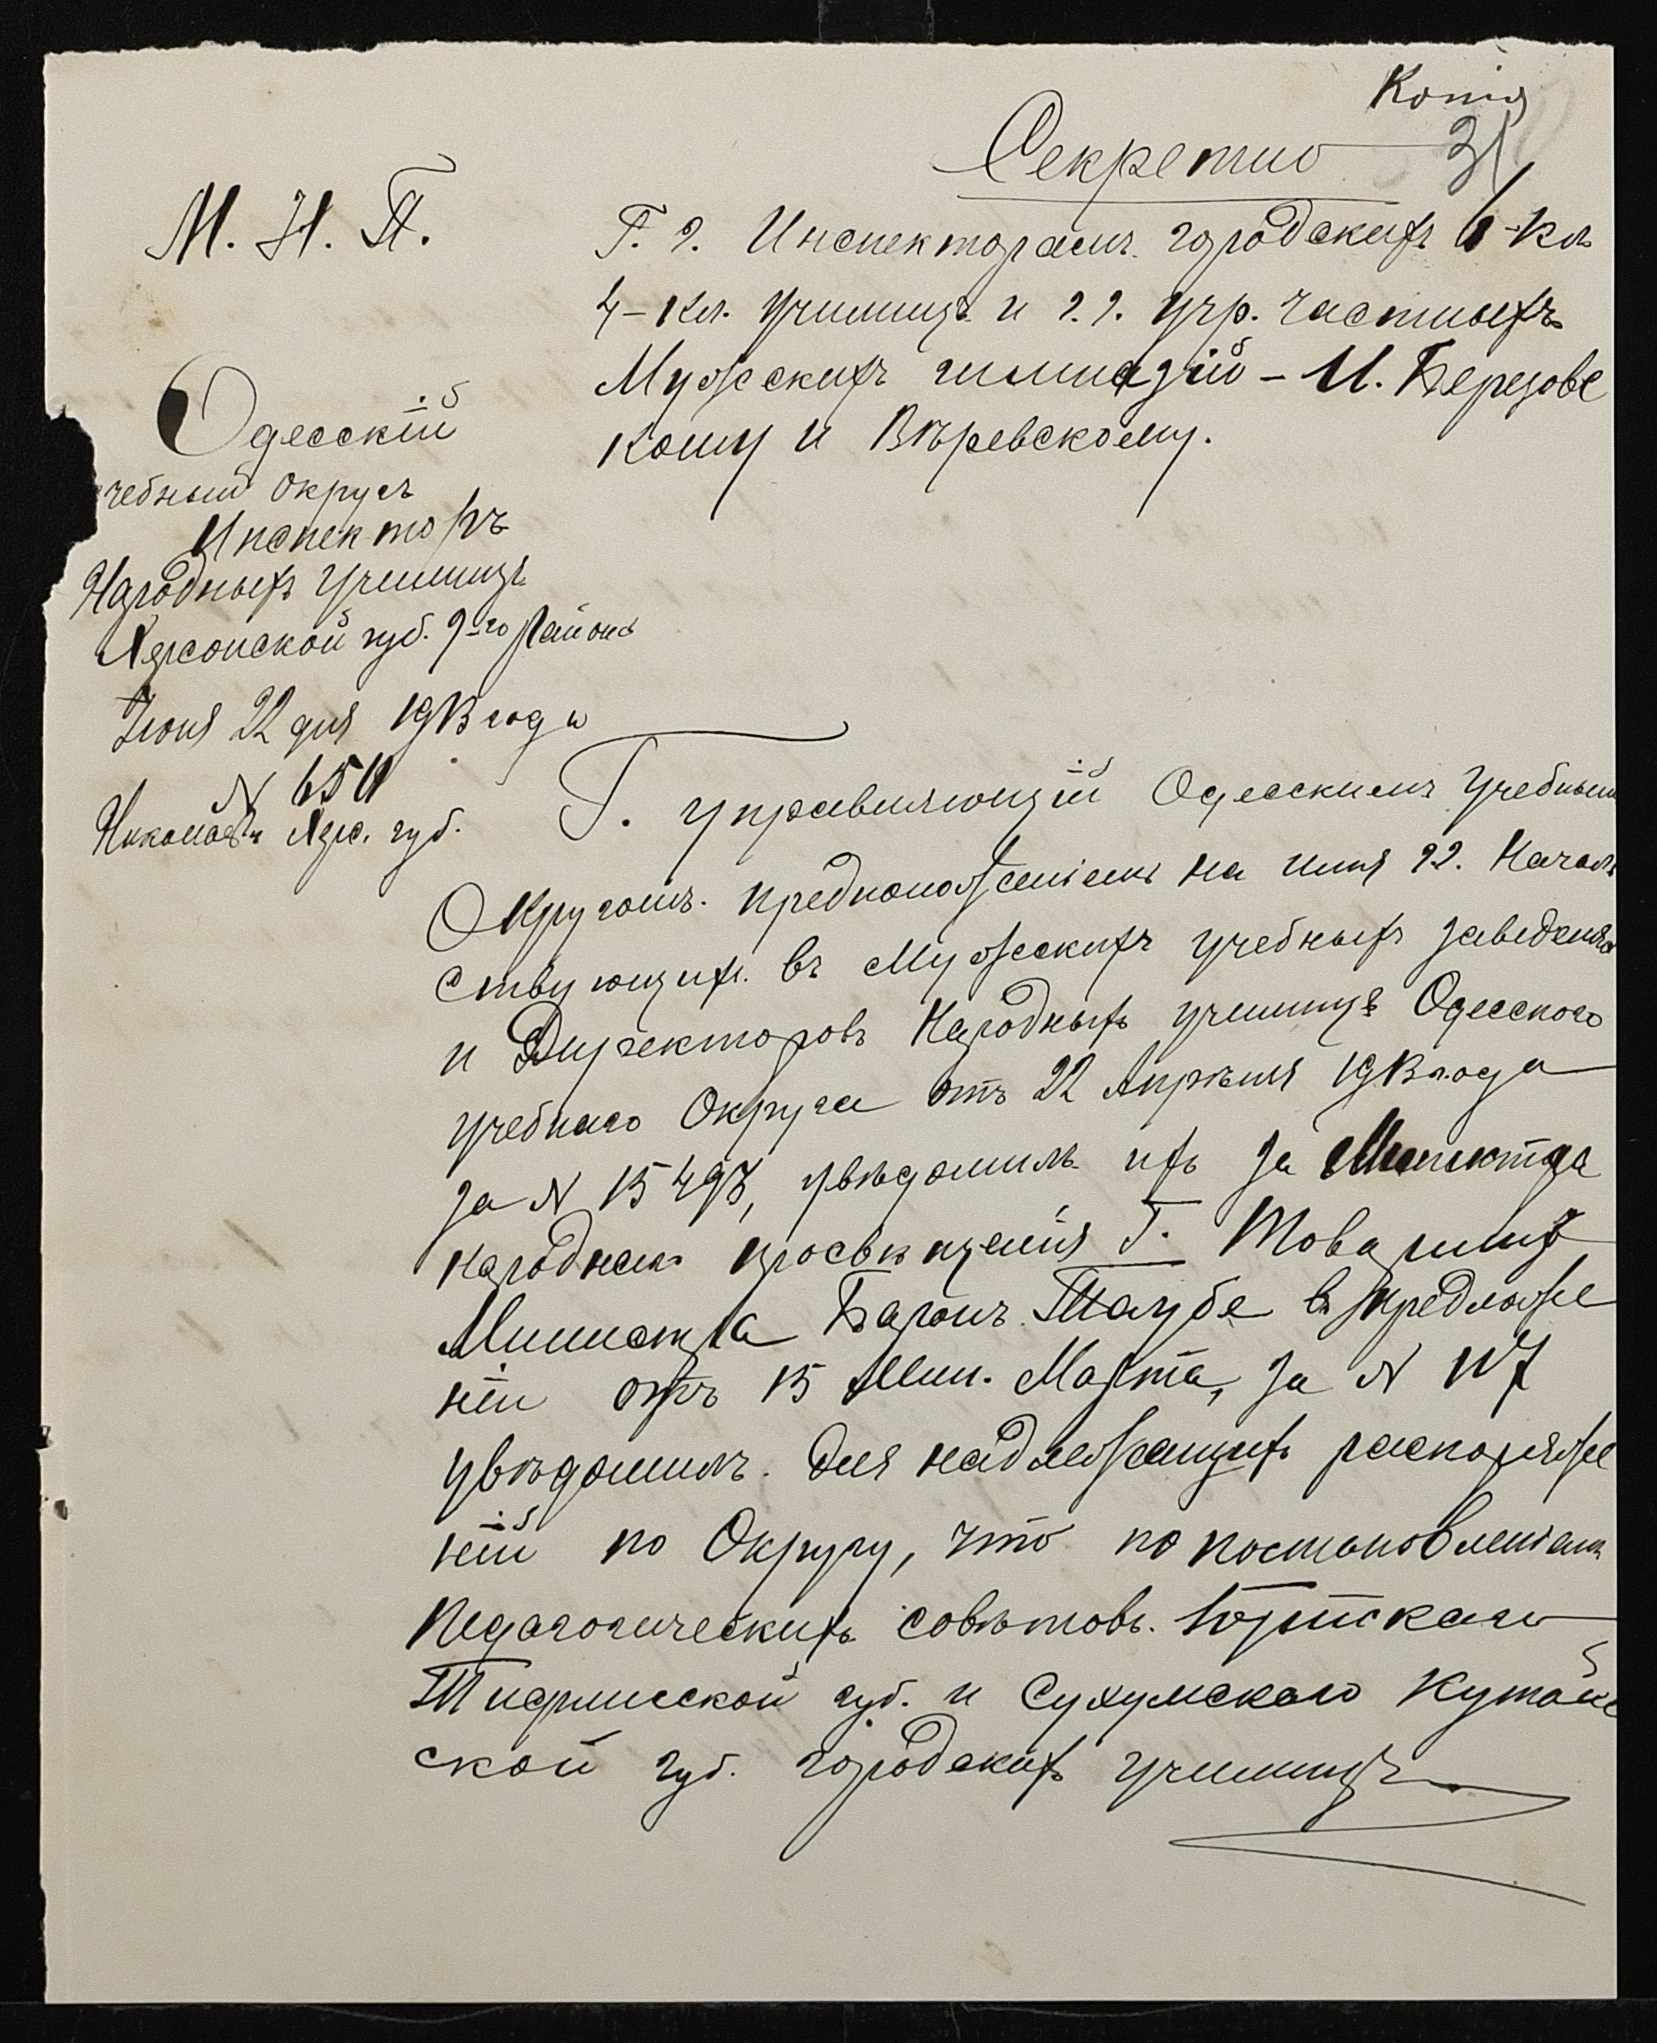 Копія
Секретно
31
М. Н. П.
Г. г. Инспекторамъ городскихъ 6-кл
4-кл. училищъ и г.г. учр. частныхъ
Мужскихъ гимназій – И. Березовс
кому и Вѣревскому.
Одесскій
чебный округъ
Инспекторъ
Народныхъ училищъ
Херсонской губ. 2-го района
Іюня 22 дня 1913 года
N 650
Николаевъ Хер. губ.
Г. управляющій Одесскимъ учебнымъ
Округомъ предположеніемъ на имя г.г. Началь
ствующихъ въ мужскихъ учебныхъ заведенія
и Директоровъ Народныхъ училищъ Одесского
учебнаго Округа отъ 22 Апрѣля 1913 года
за N 15497, увѣдомилъ ихъ за Министра
народнаго просвѣщенія Г. Товарищъ
Министра Баронъ Таубе въ предложе
ніи отъ 15 Мин. Марта, за N 117
увѣдомилъ для надлежащихъ распоряже
ній по Округу, что по постановленіямъ
педагогическихъ совѣтовъ Горійскаго
Тифлисской губ. и Сухумскаго Кутаис
ской губ. городскихъ училищъ